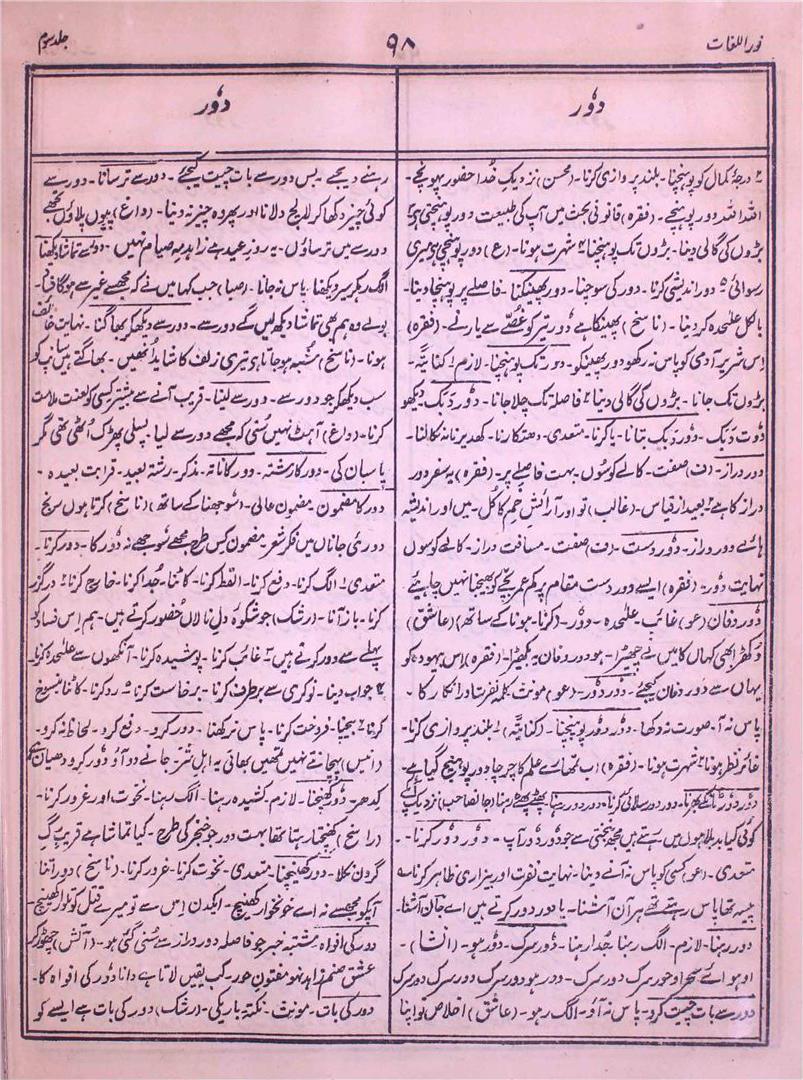 نور اللغات
۹۸
جلد سوم
دوٗر
دوٗر
۲ درجۂ کمال کو پہونچنا۔ بلند پروازی کرنا۔ (محسن) نزدیکِ خُدا حضور پہونچے۔
اللہ اللہ دور پہونچے۔ (فقرہ) قانونی بحث میں آپ کی طبیعت دور پہونچتی ہے
بڑوں کی گالی دینا۔ بڑوں تک پہونچنا ۴ شہرت ہونا۔ (ع) دور پہونچی ہے میری
رسوائی ۵ دور اندیشی کرنا۔ دور کی سوچنا۔ دور پھینکنا۔ فاصلے پر پہونچا دینا۔
بالکل علٰحدہ کر دینا۔ (ناسخ) پھینکا ہے دُور تیر کو غصّے سے یار نے۔ (فقرہ)
اِس شریر آدمی کو پاس نہ رکھو دور پھینکو۔ دور تک پہونچنا۔ لازم ۱ کنایتہً۔
بڑوں تک جانا۔ بڑوں کی گالی دینا ۲ فاصلہ تک چلا جانا۔ دُور دَبک۔ دیکھو
دُوت دَبک۔ دوُر دَبک بتانا۔ یا کرنا۔ متعدی۔ دھتکارنا۔ کھدیڑنا نہ کالنا۔
دور دراز۔ (ف) صفت۔ کالے کوسوں۔ بہت فاصلے پر۔ (فقرہ) یہ سفر دور
دراز کا ہے ۲ بعید از قیاس۔ (غالب) تو اور آرائشِ خمِ کاکُل۔ میں اور اندیشہ
ہائے دور دراز۔ دوٗر دست۔ (ف) صفت۔ مسافت دراز۔ کالے کوسوں
نہایت دوٗر۔ (فقرہ) ایسے دور دست مقام پر کم عمر بچّے کو بھیجنا نہیں چاہئے
دوٗر دفان (عو) غائب۔ علٰحدہ۔ دوٗر۔ (کرنا۔ ہونا کے ساتھ) (عاشق)
دُکھڑا بھی کہاں کا میں نے چھیڑا۔ ہو دور دفان یہ بکھڑا۔ (فقرہ) اِس بیہودہ کو
یہاں سے دور دفان کیجئے۔ دور دوٗر۔ (عو) مونث۔ کلمۂ نفرت اور انکار کا۔
پاس نہ آ۔ صورت نہ دکھا۔ دوٗر دوٗر پہونچنا۔ (کنایتہً) ۱ بلند پروازی کرنا۔
غائر نظر ہونا ۲ شہرت ہونا۔ (فقرہ) اب تمھارے علم کا چرچا دور پہونچ گیا ہے۔
دوٗر دوٗر رہنا۔ لازم۔ الگ رہنا۔ جُدا رہنا۔ دُور سرک۔ دوٗر ہو۔ (انشا)۔
او ہو ائے سحر او حور سرک دور سرک۔ ودر ہو دور سرک دور سرک دور سرک
دور سے بات چیت کرو۔ پاس نہ آؤ۔ الگ رہو۔ (عاشق) اخلاص تو اپنا
رہنے دیجے۔ بس دور سے بات چیت کیجئے۔ دور سے ترسانا۔ دور سے
کوئی چیز دکھا کر لالچ دلانا اور پھر وہ چیز نہ دینا۔ (داغ) پیوں پلاؤں تجھے
دور سے میں ترساؤں۔ یہ روزِ عید ہے زاہد مہِ صیام نہیں۔ دور سے تماشا دیکھنا
الگ رہ کر سیر دیکھنا۔ پاس نہ جانا۔ (صبا) جب کہا میں نے کہ مجھسے غیر سے ہوگا فساد۔
بولے وہ ہم بھی تماشا دیکھ لیں گے دور سے۔ دور سے دیکھ کر بھاگنا۔ نہایت خائف
ہونا۔ (ناسخ) مشتبہ ہو جاتا ہے تیری زلف کا شاید اُنھیں۔ بھاگتے ہیں سانپ کو
سب دیکھ کر جو دور سے۔ دور سے لینا۔ قریب آنے سے پیشتر کسی کو لعنت ملامت
کرنا۔ (داغ) آہٹ نہیں سُنی کہ مجھے دور سے لیا۔ پسلی پھڑک اُٹھی تھی مگر
پاسبان کی۔ دور کا رشتہ۔ دور کا ناتہ۔ مذکر۔ رشتہ بعید۔ قرابت بعیدہ۔
دور کا مضمون۔ مضمون عالی۔ (سوجھنا کے ساتھ) (ناسخ) کرتا ہوں سرِنج
دوریِ جاناں میں فکرِ شعر۔ مضمون کس طرح مجھے سوجھے نہ دوٗر کا۔ دور کرنا۔
متعدی ۱ الگ کرنا۔ دفع کرنا۔ القط کرنا۔ کاٹنا۔ جُدا کرنا۔ خارج کرنا ۲ درگزر
کرنا۔ باز آنا۔ (رشک) جو شکوۂ دلِ نالاں حُضور کرتے ہیں۔ ہم اِس فساد کو
پہلے سے دور کرتے ہیں ۳ غائب کرنا۔ پوشیدہ کرنا۔ آنکھوں سے علٰحدہ کرنا۔
۴ جواب دینا۔ نوکری سے برطرف کرنا۔ برخاست کرنا ۵ رد کرنا۔ کاٹنا منسوخ
کرنا ۶ بیچنا۔ فروخت کرنا۔ پاس نہ رکھنا۔ دور کرو۔ دفع کرو۔ لحاظ نہ کرو۔
(انیس) پہچانتے نہیں تمھیں بھائی یہ اہلِ شر۔ جانے دو آؤ دور کرو دھیان ہے
کدھر۔ دوٗر کھچنا۔ لازم۔ کشیدہ رہنا۔ الگ رہنا۔ نخوت اور غرور کرنا۔
(راسخ) کھنچتا رہتا تھا بہت دور جو خنجر کی طرح۔ کیا تماشا ہے قریبِ رگِ
گردن نکلا۔ دور کھینچنا۔ متعدی۔ نخوت کرنا۔ غرور کرنا۔ (ناسخ) دور اتنا
آپکو مجھسے نہ اے خونخوار کھینچ۔ ایکدن اِس سے تو میرے قتل کو تلوار کھینچ۔
دور کی افواہ۔ مشتبہ خبر جو فاصلہ دور دراز سے سُنی گئی ہو۔ (آتش) چھوڑ کر
عشقِ صنم زاہد نہو مفتونِ حور۔ کب یقیں لاتا ہے دانا دوٗر کی افواہ کا۔
دور کی بات۔ مونث۔ نکتہ باریکی۔ (رشک) دور کی بات ہے ایسے کو